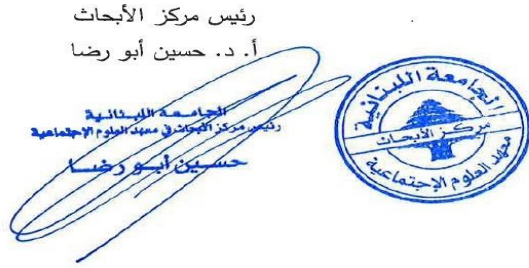 رئيس مركز الأبحاث
أ. د. حسين أبو رضا
الجامعة اللبنانية
رئيس مركز الأبحاث في معهد العلوم الإجتماعية
حسين أبو رضا
الجامعة اللبنانية
مركز الأبحاث
معهد العلوم الإجتماعية